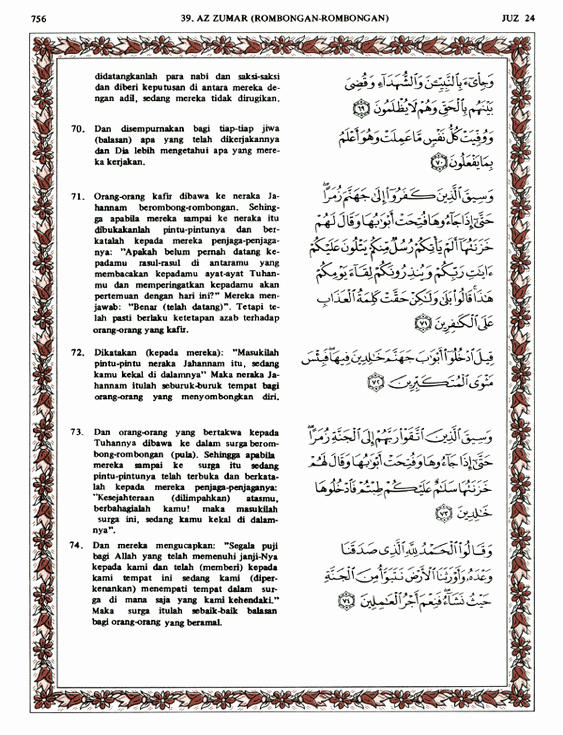 756
39. AZ ZUMAR (ROMBONGAN-ROMBONGAN)
JUZ 24
didatangkanlah para nabi dan saksi-saksi
dan diberi keputusan di antara mereka de-
ngan adil, sedang mereka tidak dirugikan.
70. Dan disempurnakan bagi tiap-tiap jiwa
(balasan) apa yang telah dikerjakannya
dan Dia lebih mengetahui apa yang mere-
ka kerjakan.
71. Orang-orang kafir dibawa ke neraka Ja-
hannam berombong-rombongan. Sehing-
ga apabila mereka sampai ke neraka itu
dibukakanlah pintu-pintunya dan ber-
katalah kepada mereka penjaga-penjaga-
nya: "Apakah belum pernah datang ke-
padamu rasul-rasul di antaramu yang
membacakan kepadamu ayat-ayat Tuhan-
mu dan memperingatkan kepadamu akan
pertemuan dengan hari ini?" Mereka men-
jawab: "Benar (telah datang)". Tetapi te-
lah pasti berlaku ketetapan azab terhadap
orang-orang yang kafir.
72. Dikatakan (kepada mereka): "Masukilah
pintu-pintu neraka Jahannam itu, sedang
kamu kekal di dalamnya" Maka neraka Ja-
hannam itulah seburuk-buruk tempat bagi
orang-orang yang menyombongkan diri.
73. Dan orang-orang yang bertakwa kepada
Tuhannya dibawa ke dalam surga berom-
bong-rombongan (pula). Sehingga apabila
mereka sampai ke surga itu sedang
pintu-pintunya telah terbuka dan berkata-
lah kepada mereka penjaga-penjaganya:
"Kesejahteraan (dilimpahkan) atasmu,
berbahagialah kamu! maka masukilah
surga ini, sedang kamu kekal di dalam-
nya".
74. Dan mereka mengucapkan: "Segala puji
bagi Allah yang telah memenuhi janji-Nya
kepada kami dan telah (memberi) kepada
kami tempat ini sedang kami (diper-
kenankan) menempati tempat dalam sur-
ga di mana saja yang kami kehendaki."
Maka surga itulah sebaik-baik balasan
bagi orang-orang yang beramal.
وَجِاْىٓءَ بِالنَّبِيِّـۧنَ وَالشُّهَدَآءِ وَقُضِىَ
بَيْنَهُم بِالْحَقِّ وَهُمْ لَا يُظْلَمُونَ ﴿٦٩﴾
وَوُفِّيَتْ كُلُّ نَفْسٍ مَّا عَمِلَتْ وَهُوَ أَعْلَمُ
بِمَا يَفْعَلُونَ ﴿٧٠﴾
وَسِيقَ الَّذِينَ كَفَرُوٓا۟ إِلَىٰ جَهَنَّمَ زُمَرًا ۖ
حَتَّىٰٓ إِذَا جَآءُوهَا فُتِحَتْ أَبْوَٰبُهَا وَقَالَ لَهُمْ
خَزَنَتُهَآ أَلَمْ يَأْتِكُمْ رُسُلٌ مِّنكُمْ يَتْلُونَ عَلَيْكُمْ
ءَايَٰتِ رَبِّكُمْ وَيُنذِرُونَكُمْ لِقَآءَ يَوْمِكُمْ
هَٰذَا ۚ قَالُوا۟ بَلَىٰ وَلَٰكِنْ حَقَّتْ كَلِمَةُ الْعَذَابِ
عَلَى الْكَٰفِرِينَ ﴿٧١﴾
قِيلَ ادْخُلُوٓا۟ أَبْوَٰبَ جَهَنَّمَ خَٰلِدِينَ فِيهَا ۖ فَبِئْسَ
مَثْوَى الْمُتَكَبِّرِينَ ﴿٧٢﴾
وَسِيقَ الَّذِينَ اتَّقَوْا۟ رَبَّهُمْ إِلَى الْجَنَّةِ زُمَرًا ۖ
حَتَّىٰٓ إِذَا جَآءُوهَا وَفُتِحَتْ أَبْوَٰبُهَا وَقَالَ لَهُمْ
خَزَنَتُهَا سَلَٰمٌ عَلَيْكُمْ طِبْتُمْ فَادْخُلُوهَا
خَٰلِدِينَ ﴿٧٣﴾
وَقَالُوا۟ الْحَمْدُ لِلَّهِ الَّذِى صَدَقَنَا
وَعْدَهُۥ وَأَوْرَثَنَا الْأَرْضَ نَتَبَوَّأُ مِنَ الْجَنَّةِ
حَيْثُ نَشَآءُ ۖ فَنِعْمَ أَجْرُ الْعَٰمِلِينَ ﴿٧٤﴾